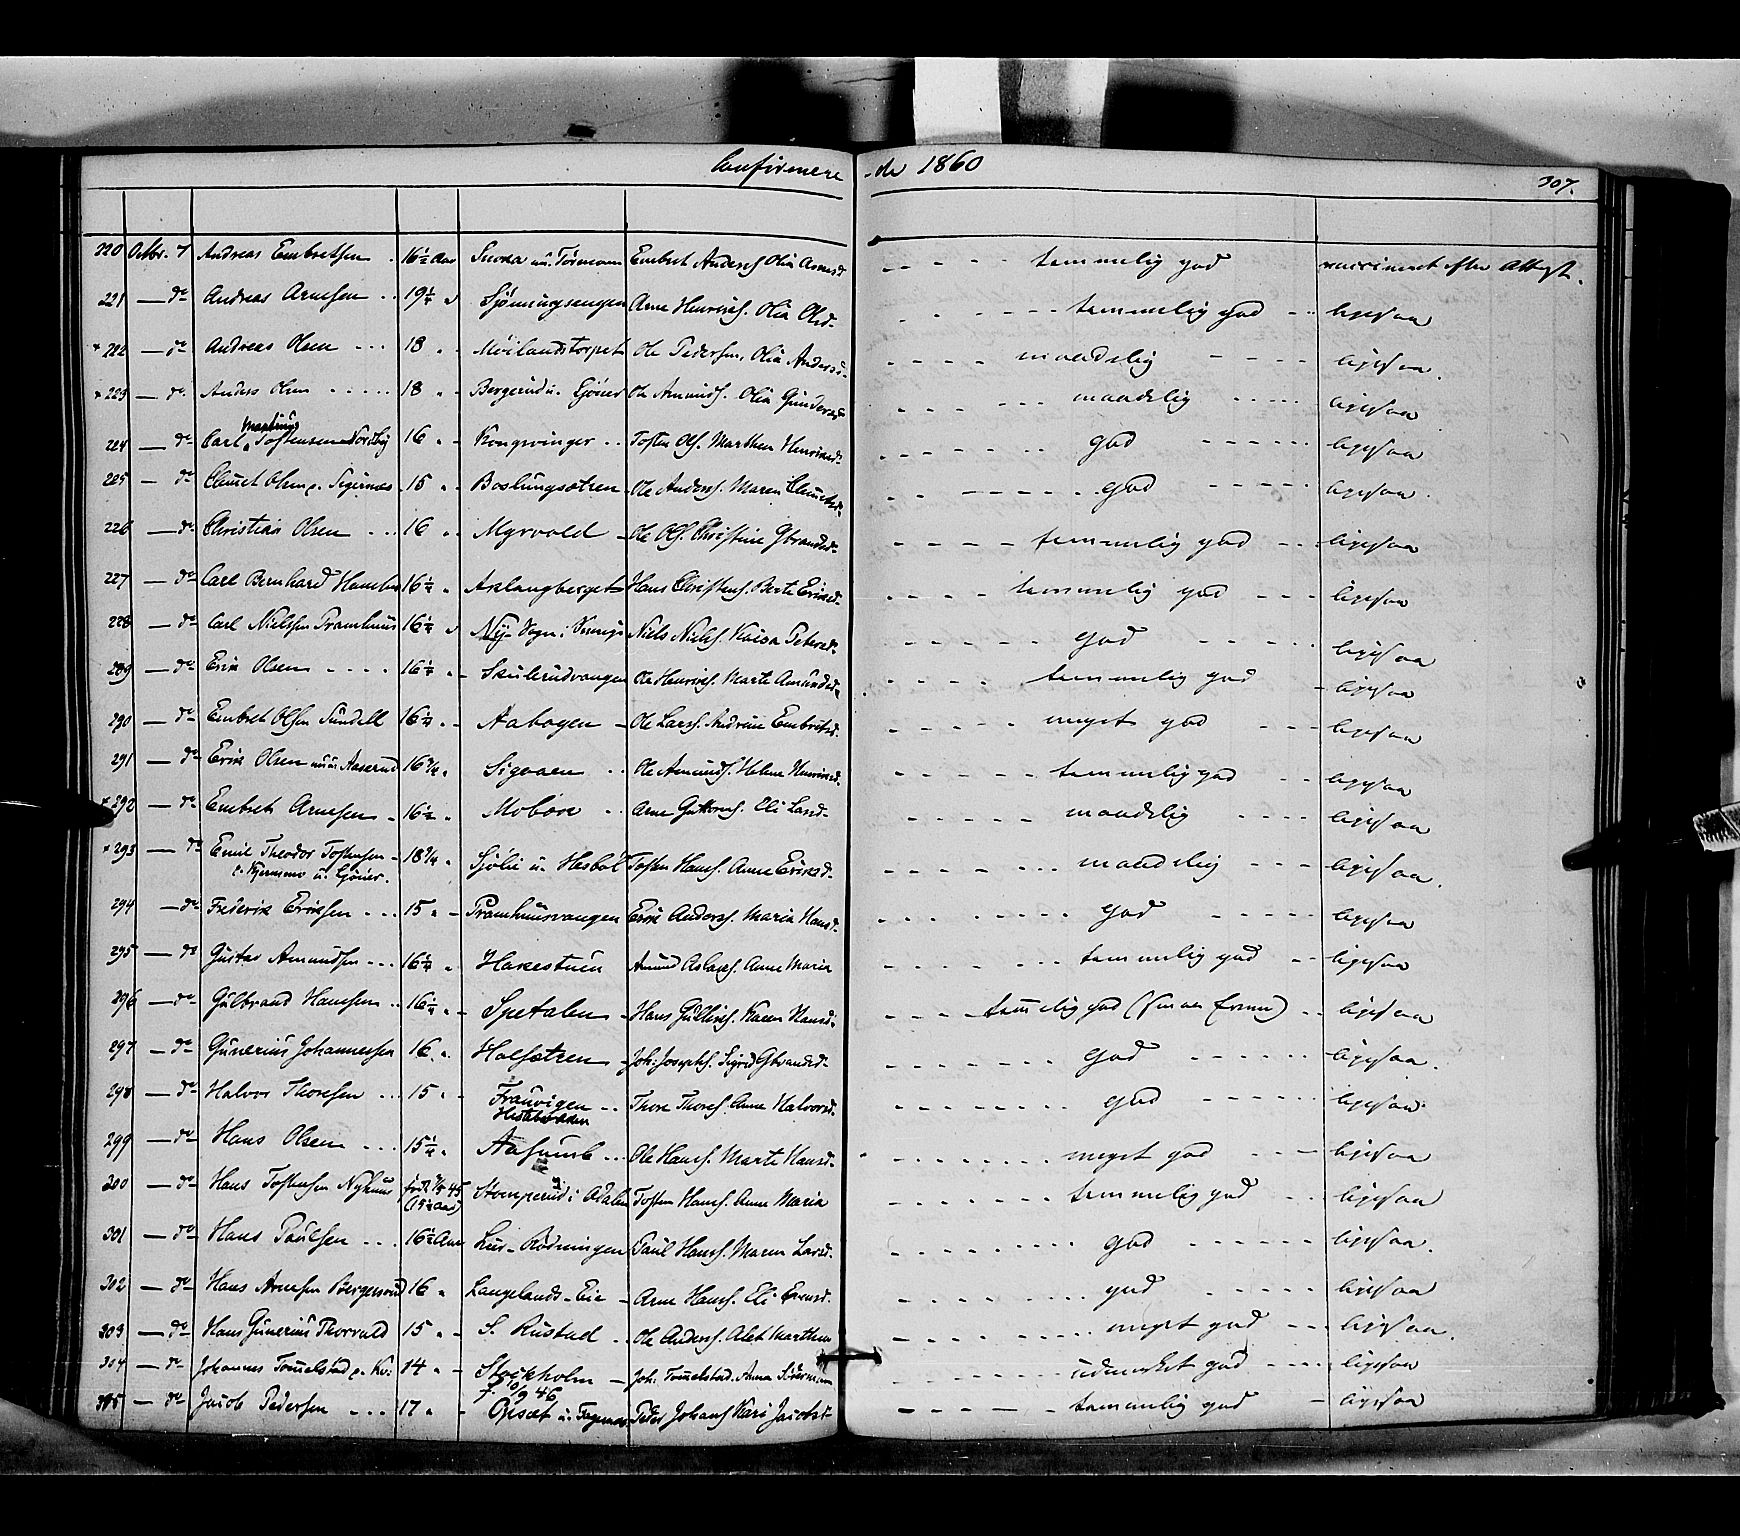 Confirmere -de 1860
307.
220 Octbr. 7 Andreas Embretsen 16½ Aar Embret Anders. Olia Arnesd. temmelig god vaccineret efter Attest.
221 — do Andreas Arnesen 19¼ Arne Henrichs. Olia Olsd. temmelig god ligesaa
222 — do Andreas Olsen 18 Møilandstorpet Ole Pedersen, Olia Andersd. maadelig ligesaa.
223 — do Anders Olsen 18 Bergerud u. Sjöner Ole Amunds. Olia Gundersd. maadelig ligesaa
224 — do Carl Martinus Tostensen Nordby 16 Kongsvinger Tosten Ols. Marthea Henriksd. god ligesaa
225 — do Clemet Olsen p. Sigernæs 15 Ole Anders. Maren Clemetsd. god ligesaa.
226 — do Christian Olsen 16 Myrvold Ole Ols. Christine Gbrandsd. temmelig god ligesaa
227 — do Carl Bernhard 16½ Aslangberget Hans Christens. Berte Eriksd. temmelig god ligesaa
228 — do Carl Nielsen Pramhuus 16¼ Ny-Sogn i Sverige Niels Niels. Kaisa Petersd. god ligesaa
289 — do Erik Olsen 16¼ Skulerudvangen Ole Henrichs. Marte Amundsd. temmelig god ligesaa
290 — do Embret Olsen Sundell 16¼ Aabogen Ole Lars. Andrine Embretsd. meget god ligesaa
291 — do Erik Olsen Aaserud 16¾ Sigvaen Ole Amunds. Helene Henriksd. temmelig god ligesaa
292 — do Embret Arnesen 16½ Arne Guttorms. Eli Larsd. maadelig ligesaa
293 — do Emil Theodor Tostensen 18¾ Sjölie u. Hesbøl Tosten Hans. Anne Eriksd. maadelig ligesaa.
p. u. Sjöner.
294 — do Frederik Eriksen 15 Pramhuusvangen Erik Anders. Maria Hansd. god ligesaa
295 — do Gustav Amundsen 16¼ Hakestuen Amund Aslaks. Anne Maria temmelig god ligesaa
296 — do Gulbrand Hansen 16¼ Spetalen Hans Gulliks. Karen Hansd. temelig god (smaa Evner) ligesaa
297 — do Gunerius Johannessen 16 Holsætren Joh: Josephs. Sigrid Gbrandsd. god ligesaa.
298 — do Halvor Thoresen 15 Thore Thores. Anne Halvorsd. god ligesaa
299 — do Hans Olsen 15¼ Aasumb Ole Hans. Marte Hansd. meget god ligesaa
300 — do Hans Tostensen Nyhuus født 45 (15¼ Aar) Stomperud i Aadalen Tosten Hans. Anne Maria temmelig god ligesaa
301 — do Hans Paulsen 16½ Aar Paul Hans. Maren Larsd. god ligesaa.
302 — do Hans Arnesen Bergersrud 16 Langelands-Eie Arne Hans. Eli Evensd. god ligesaa
303 — do Hans Gunerius Thorvald 15 S. Rustad Ole Anders. Alet Marthea meget god ligesaa.
304 — do Johannes Tommelstad p. Kv: 14 Stockholm Joh: Tommelstad. Anna Söderman udmærket god ligesaa
f. 10/9 46
305 — do Jacob Pedersen 17 Opsæt u. Peder Johans. Kari Jacobsd. temmelig god ligesaa